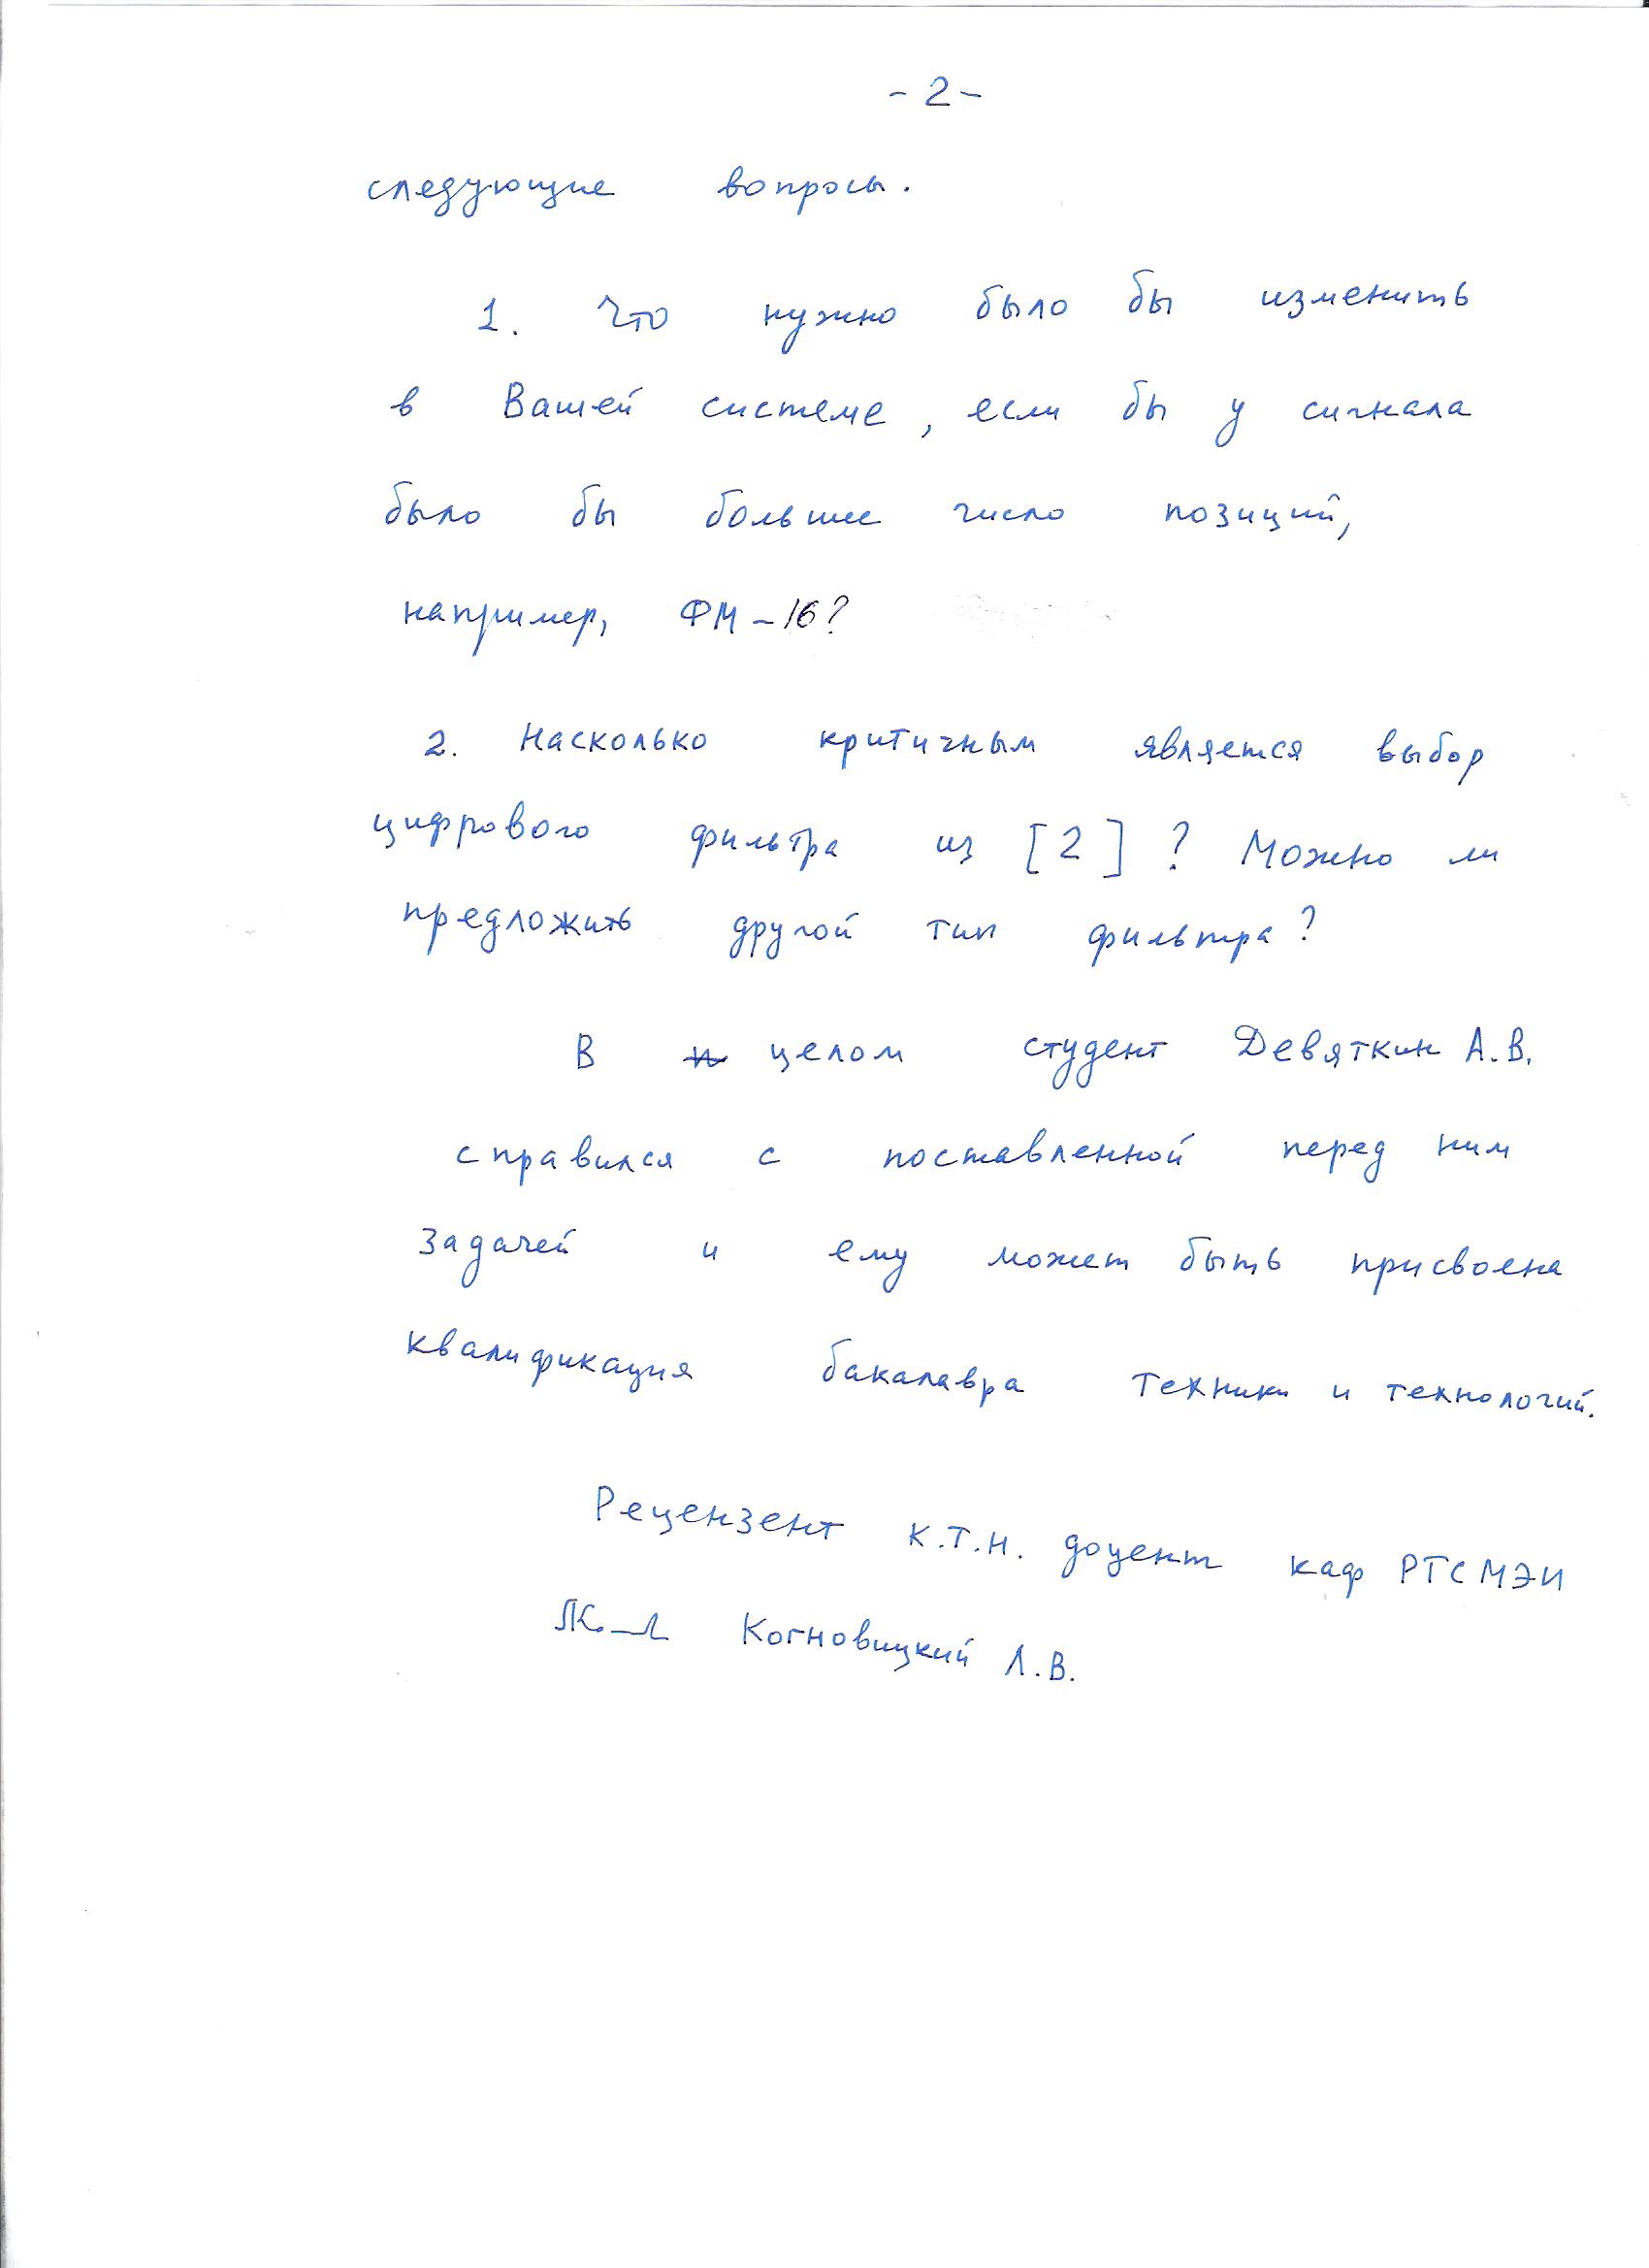 - 2 -
следующие вопросы.
1. Что нужно было бы изменить
в Вашей системе, если бы у сигнала
было бы больше число позиций,
например, ФМ-16?
2. Насколько критичным является выбор
цифрового фильтра из [2]? Можно ли
предложить другой тип фильтра?
В целом студент Девяткин А.В.
справился с поставленной перед ним
задачей и ему может быть присвоена
квалификация бакалавра техники и технологий.
Рецензент к.т.н. доцент каф РТС МЭИ
Когновицкий Л.В.